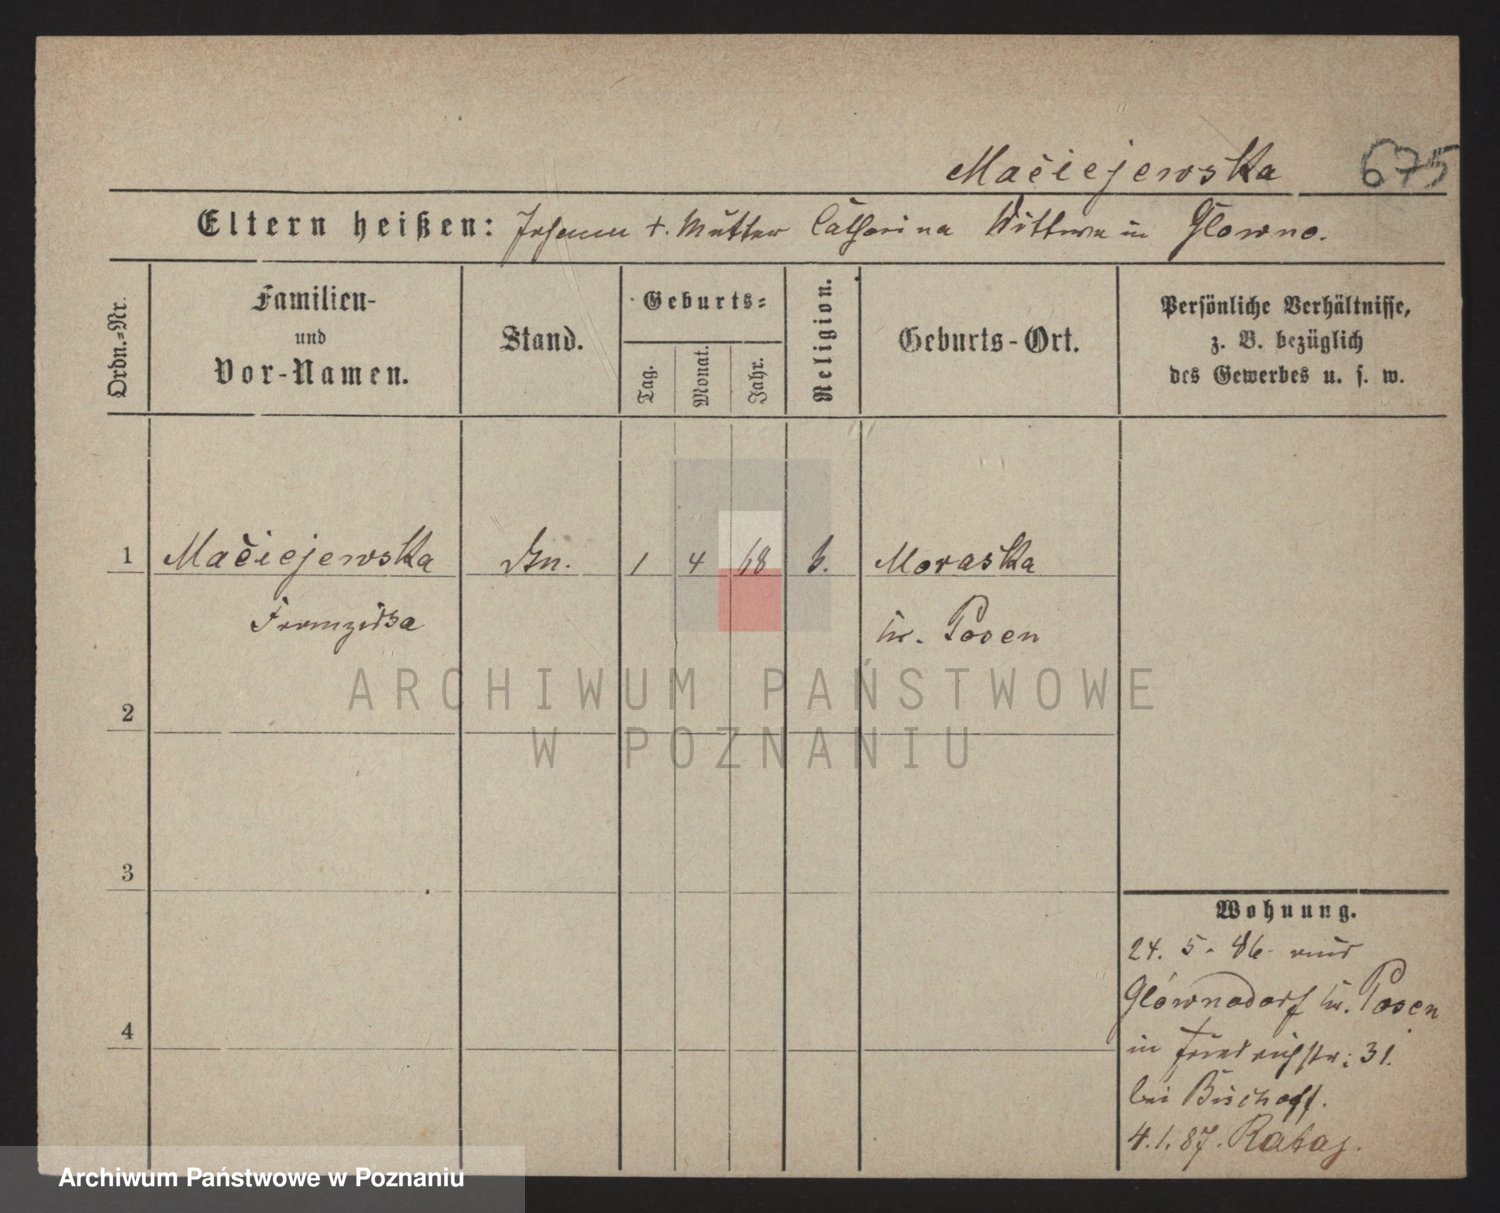 Mačiejewska 675
Eltern heißen: Johann †. Mutter Catharina Wittwe in Glowno.
Ordn.=Nr.
Familien-
und
Vor-Namen.
Stand.
Geburts=
Tag.
Monat.
Jahr.
Religion.
Geburts-Ort.
Persönliche Verhältnisse,
z. B. bezüglich
des Gewerbes u. s. w.
1 Mačiejewska 1 4 68 k. Moraska
Franziska Kr. Posen
2
ARCHIWUM PAŃSTWOWE
W POZNANIU
3
4
Wohnung.
24. 5. 86. aus
Glównodorf Kr. Posen
in Friedrichstr: 31.
bei Bischoff.
4.1.87. Rataj.
Archiwum Państwowe w Poznaniu